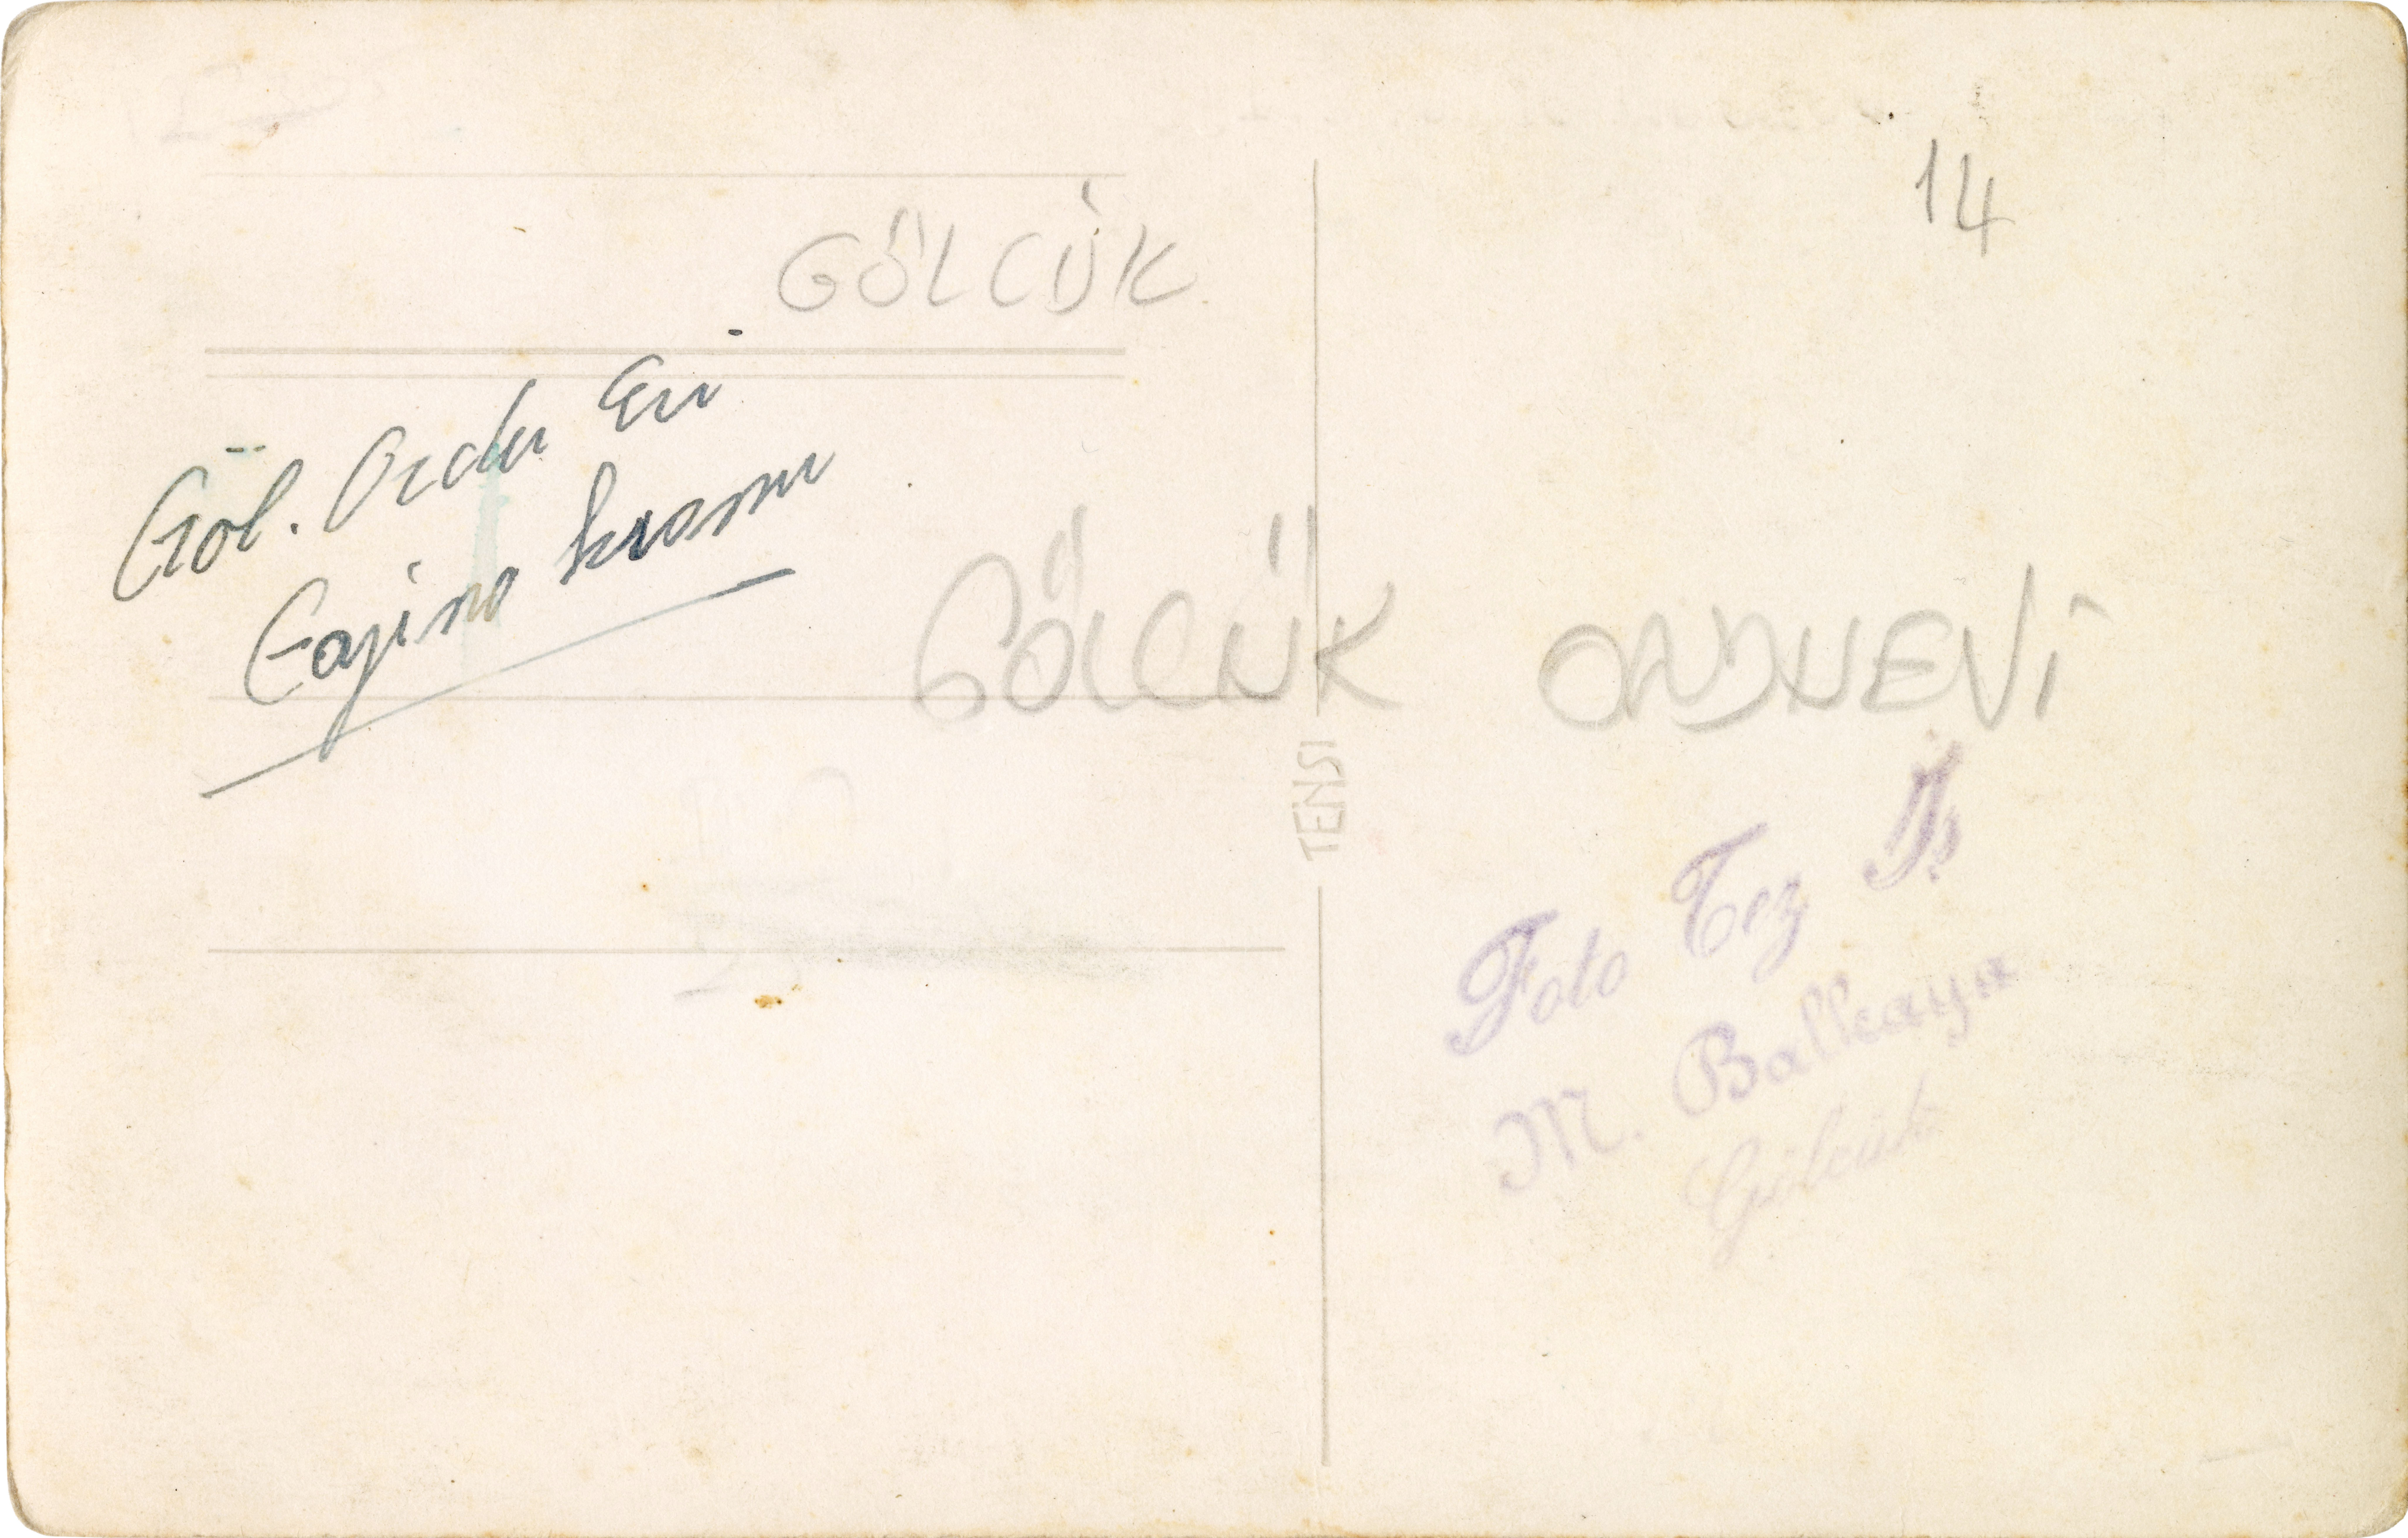 14
GÖLCÜK
Göl. Ordu Evi
Gazino kısmı
GÖLCÜK ORDUEVİ
TENSI
Foto Tez İş
M. Balkaya
Gölcük